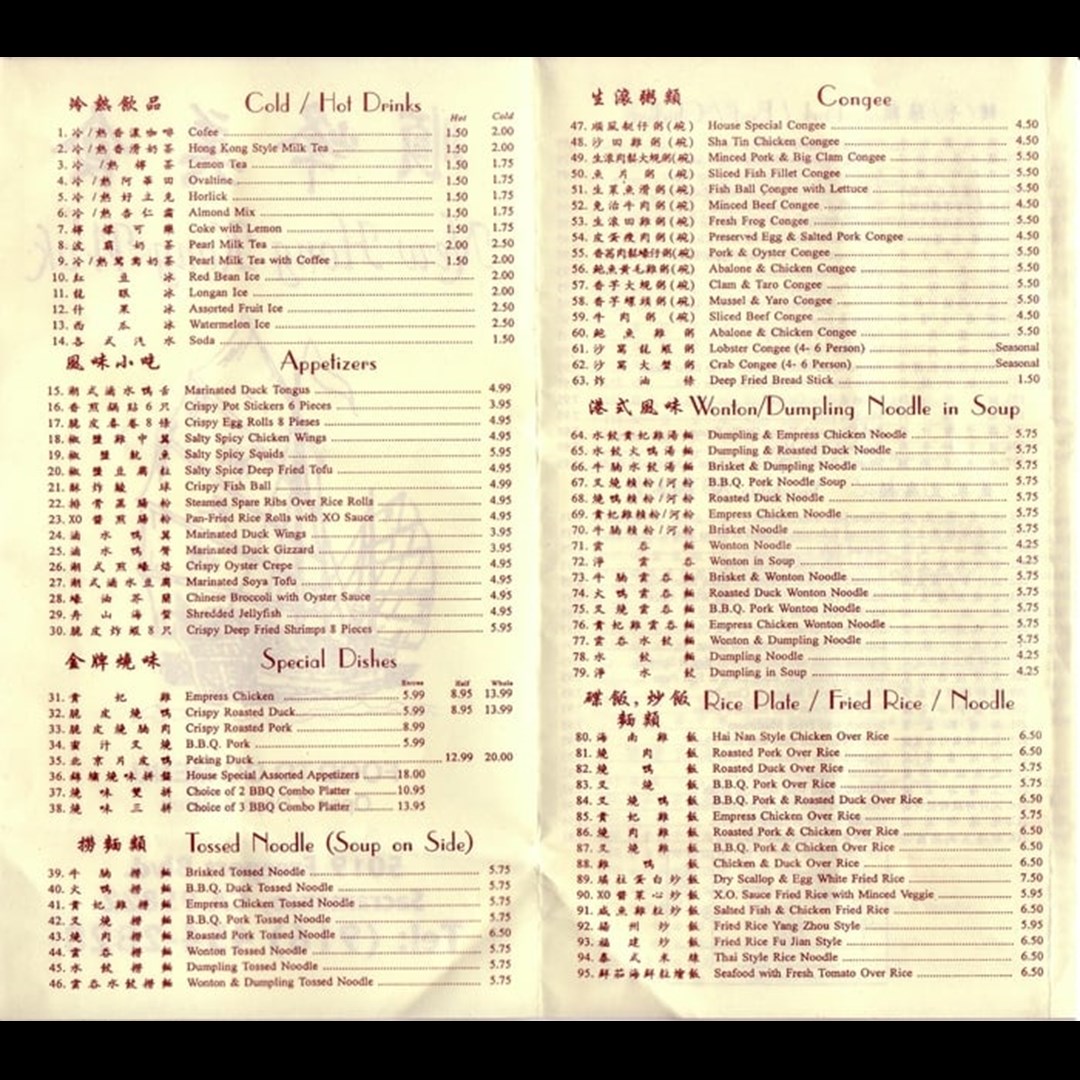 冷熱飲品 Cold / Hot Drinks
Hot Cold
1. 冷/熱香濃咖啡 Cofee 1.50 2.00
2. 冷/熱香滑奶茶 Hong Kong Style Milk Tea 1.50 2.00
3. 冷/熱檸茶 Lemon Tea 1.50 1.75
4. 冷/熱阿華田 Ovaltine 1.50 1.75
5. 冷/熱好立克 Horlick 1.50 1.75
6. 冷/熱杏仁霜 Almond Mix 1.50 1.75
7. 檸檬可樂 Coke with Lemon 1.50 1.75
8. 波霸奶茶 Pearl Milk Tea 2.00 2.50
9. 冷/熱鴛鴦奶茶 Pearl Milk Tea with Coffee 1.50 2.00
10. 紅豆冰 Red Bean Ice 2.00
11. 龍眼冰 Longan Ice 2.00
12. 什果冰 Assorted Fruit Ice 2.50
13. 西瓜冰 Watermelon Ice 2.50
14. 各式汽水 Soda 1.50
風味小吃 Appetizers
15. 潮式滷水鴨舌 Marinated Duck Tongus 4.99
16. 香煎鍋貼6只 Crispy Pot Stickers 6 Pieces 3.95
17. 脆皮春卷8條 Crispy Egg Rolls 8 Pieses 4.95
18. 椒鹽雞中翼 Salty Spicy Chicken Wings 4.95
19. 椒鹽魷魚 Salty Spicy Squids 5.95
20. 椒鹽豆腐粒 Salty Spice Deep Fried Tofu 4.95
21. 酥炸鯪球 Crispy Fish Ball 4.99
22. 排骨蒸腸粉 Steamed Spare Ribs Over Rice Rolls 4.95
23. XO醬煎腸粉 Pan-Fried Rice Rolls with XO Sauce 4.95
24. 滷水鴨翼 Marinated Duck Wings 3.95
25. 滷水鴨腎 Marinated Duck Gizzard 3.95
26. 潮式煎蠔烙 Crispy Oyster Crepe 4.95
27. 潮式滷水豆腐 Marinated Soya Tofu 4.95
28. 蠔油芥蘭 Chinese Broccoli with Oyster Sauce 4.95
29. 舟山海蜇 Shredded Jellyfish 4.95
30. 脆皮炸蝦8只 Crispy Deep Fried Shrimps 8 Pieces 5.95
金牌燒味 Special Dishes
Entree Half Whole
31. 貴妃雞 Empress Chicken 5.99 8.95 13.99
32. 脆皮燒鴨 Crispy Roasted Duck 5.99 8.95 13.99
33. 脆皮燒腩肉 Crispy Roasted Pork 8.99
34. 蜜汁叉燒 B.B.Q. Pork 5.99
35. 北京片皮鴨 Peking Duck 12.99 20.00
36. 錦繡燒味拼盤 House Special Assorted Appetizers 18.00
37. 燒味雙拼 Choice of 2 BBQ Combo Platter 10.95
38. 燒味三拼 Choice of 3 BBQ Combo Platter 13.95
撈麵類 Tossed Noodle (Soup on Side)
39. 牛腩撈麵 Brisked Tossed Noodle 5.75
40. 火鴨撈麵 B.B.Q. Duck Tossed Noodle 5.75
41. 貴妃雞撈麵 Empress Chicken Tossed Noodle 5.75
42. 叉燒撈麵 B.B.Q. Pork Tossed Noodle 5.75
43. 燒肉撈麵 Roasted Pork Tossed Noodle 6.50
44. 雲吞撈麵 Wonton Tossed Noodle 5.75
45. 水餃撈麵 Dumpling Tossed Noodle 5.75
46. 雲吞水餃撈麵 Wonton & Dumpling Tossed Noodle 5.75
生滾粥類 Congee
47. 順風艇仔粥(碗) House Special Congee 4.50
48. 沙田雞粥(碗) Sha Tin Chicken Congee 4.50
49. 生滾肉鬆大蜆粥(碗) Minced Pork & Big Clam Congee 5.50
50. 魚片粥(碗) Sliced Fish Fillet Congee 4.50
51. 生菜魚滑粥(碗) Fish Ball Congee with Lettuce 5.50
52. 免治牛肉粥(碗) Minced Beef Congee 4.50
53. 生滾田雞粥(碗) Fresh Frog Congee 5.50
54. 皮蛋瘦肉粥(碗) Preserved Egg & Salted Pork Congee 4.50
55. 香茜肉鬆蠔仔粥(碗) Pork & Oyster Congee 5.50
56. 鮑魚黃毛雞粥(碗) Abalone & Chicken Congee 5.50
57. 香芋大蜆粥(碗) Clam & Taro Congee 5.50
58. 香芋螺頭粥(碗) Mussel & Yaro Congee 5.50
59. 牛肉粥(碗) Sliced Beef Congee 4.50
60. 鮑魚雞粥 Abalone & Chicken Congee 5.50
61. 沙窩龍蝦粥 Lobster Congee (4- 6 Person) Seasonal
62. 沙窩大蟹粥 Crab Congee (4- 6 Person) Seasonal
63. 炸油條 Deep Fried Bread Stick 1.50
港式風味 Wonton/Dumpling Noodle in Soup
64. 水餃貴妃雞湯麵 Dumpling & Empress Chicken Noodle 5.75
65. 水餃火鴨湯麵 Dumpling & Roasted Duck Noodle 5.75
66. 牛腩水餃湯麵 Brisket & Dumpling Noodle 5.75
67. 叉燒賴粉/河粉 B.B.Q. Pork Noodle Soup 5.75
68. 燒鴨賴粉/河粉 Roasted Duck Noodle 5.75
69. 貴妃雞賴粉/河粉 Empress Chicken Noodle 5.75
70. 牛腩賴粉/河粉 Brisket Noodle 5.75
71. 雲吞麵 Wonton Noodle 4.25
72. 淨雲吞 Wonton in Soup 4.25
73. 牛腩雲吞麵 Brisket & Wonton Noodle 5.75
74. 火鴨雲吞麵 Roasted Duck Wonton Noodle 5.75
75. 叉燒雲吞麵 B.B.Q. Pork Wonton Noodle 5.75
76. 貴妃雞雲吞麵 Empress Chicken Wonton Noodle 5.75
77. 雲吞水餃麵 Wonton & Dumpling Noodle 5.75
78. 水餃麵 Dumpling Noodle 4.25
79. 淨水餃 Dumpling in Soup 4.25
碟飯,炒飯 Rice Plate / Fried Rice / Noodle
麵類
80. 海南雞飯 Hai Nan Style Chicken Over Rice 6.50
81. 燒肉飯 Roasted Pork Over Rice 6.50
82. 燒鴨飯 Roasted Duck Over Rice 5.75
83. 叉燒飯 B.B.Q. Pork Over Rice 5.75
84. 叉燒鴨飯 B.B.Q. Pork & Roasted Duck Over Rice 6.50
85. 貴妃雞飯 Empress Chicken Over Rice 5.75
86. 燒肉雞飯 Roasted Pork & Chicken Over Rice 6.50
87. 叉燒雞飯 B.B.Q. Pork & Chicken Over Rice 6.50
88. 雞鴨飯 Chicken & Duck Over Rice 6.50
89. 瑤柱蛋白炒飯 Dry Scallop & Egg White Fried Rice 7.50
90. XO醬菜心炒飯 X.O. Sauce Fried Rice with Minced Veggie 5.95
91. 咸魚雞粒炒飯 Salted Fish & Chicken Fried Rice 6.50
92. 揚州炒飯 Fried Rice Yang Zhou Style 5.95
93. 福建炒飯 Fried Rice Fu Jian Style 6.50
94. 泰式米線 Thai Style Rice Noodle 6.50
95. 鮮茄海鮮粒燴飯 Seafood with Fresh Tomato Over Rice 6.50